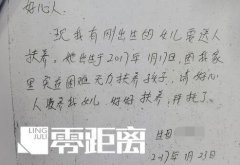 好心人:
现我有刚出生的女儿需送人
扶养。她出生于2017年1月17日,因我家
里实在困难无力扶养孩子,请好心
人收养我女儿,好好扶养,拜托了。
零距离
LING
JULI
2017年1月23日